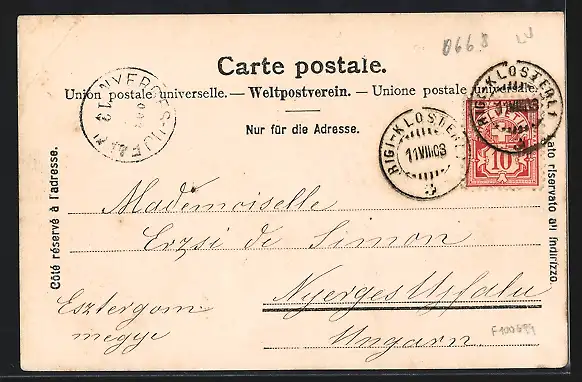 066.8 LU
Carte postale.
Union postale universelle. — Weltpostverein. — Unione postale universale.
Nur für die Adresse.
Côté réservé à l'adresse.
lato riservato all' indirizzo.
RIGI-KLÖSTERLI
11.VIII.03
RIGI-KLÖSTERLI
VIII.03
10
Mademoiselle
Erzsi de Simon
Esztergom
megye
Nyerges Ujfalu
Ungarn.